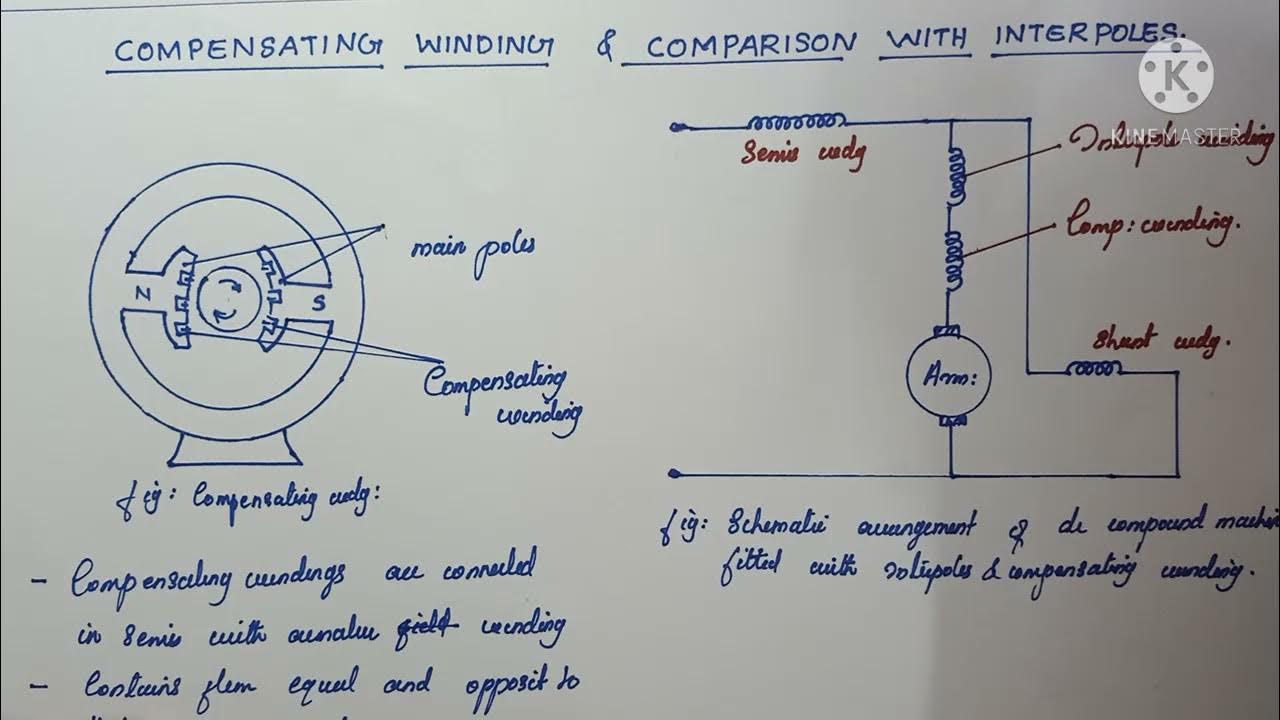 COMPENSATING WINDING & COMPARISON WITH INTERPOLES.
K
KINEMASTER
Series wdg
Interpole winding
Comp: winding.
main poles
N
S
Shunt wdg.
Arm:
Compensating
winding
fig: Compensating wdg:
fig: Schematic arrangement of dc compound machin
fitted with interpoles & compensating winding.
- Compensating windings are connected
in series with armature field winding
- Contains flem equal and opposit to